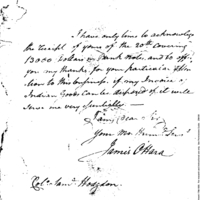 I have only time to acknowledge
the receipt of yours of the 20th covering
13000 Dollars in Bank Notes, and to offer
you my thanks for your particular atten
tion to this business, if my Invoice of
Indian Goods can be disposed of it will
serve me very essentially —
I am, Dear Sir
Your Mo: Humb: Servt
James O'Hara
Col. Saml. Hodgdon.